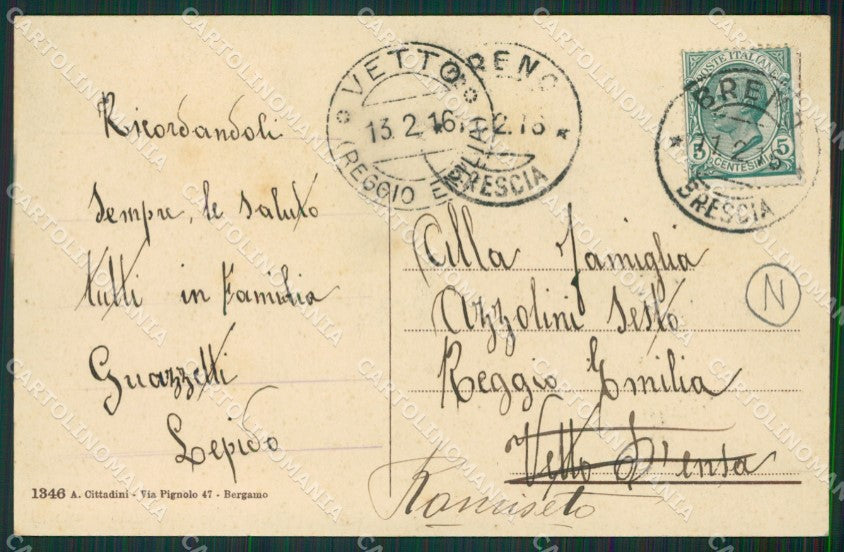 Ricordandoli
sempre, le saluto
tutti in Familia
Guazzetti
Lepido
1346 A. Cittadini - Via Pignolo 47 - Bergamo
VETTO
13.2.16
(REGGIO EMILIA)
BRENO
2.16
BRESCIA
POSTE ITALIANE
5 5
CENTESIMI
BRENO
11.2.16
BRESCIA
N
Alla Famiglia
Azzolini Sesto
Reggio Emilia
Vetto D'ensa
Ramiseto
CARTOLINOMANIA